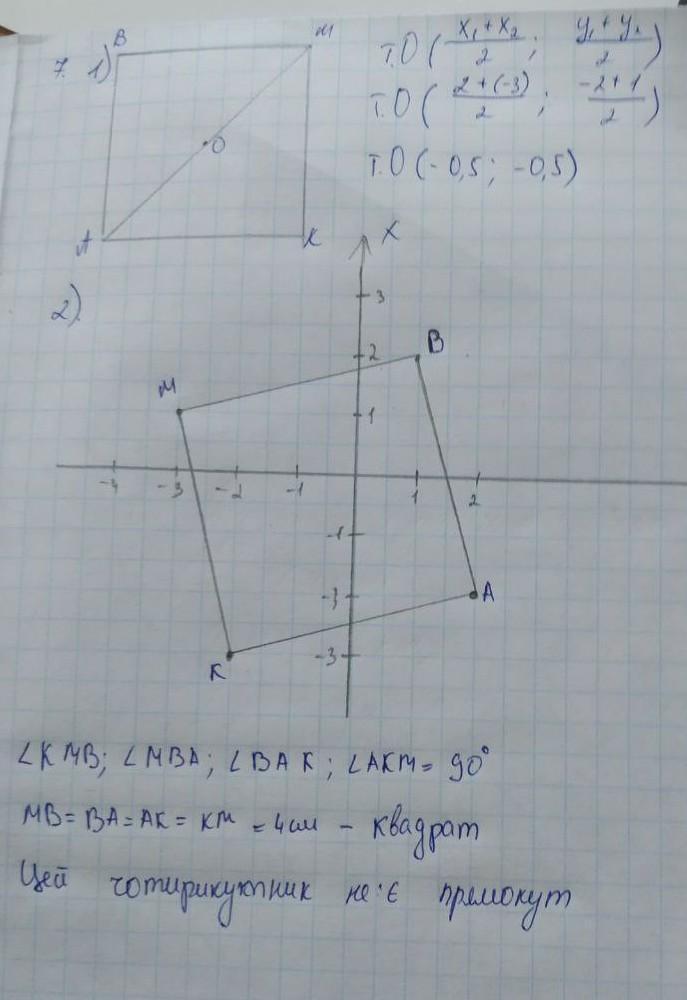 7. 1) B M
т.О( x₁+x₂ / 2 ; y₁+y₂ / 2 )
т.О( 2+(-3) / 2 ; -2+1 / 2 )
O
т.О(-0,5; -0,5)
A K
X
2).
3
B
2
M
1
-4 -3 -2 -1 1 2
-1
-3 A
-3
K
∠KMB; ∠MBA; ∠BAK; ∠AKM = 90°
MB = BA = AK = KM = 4см - квадрат
Цей чотирикутник не є премокут